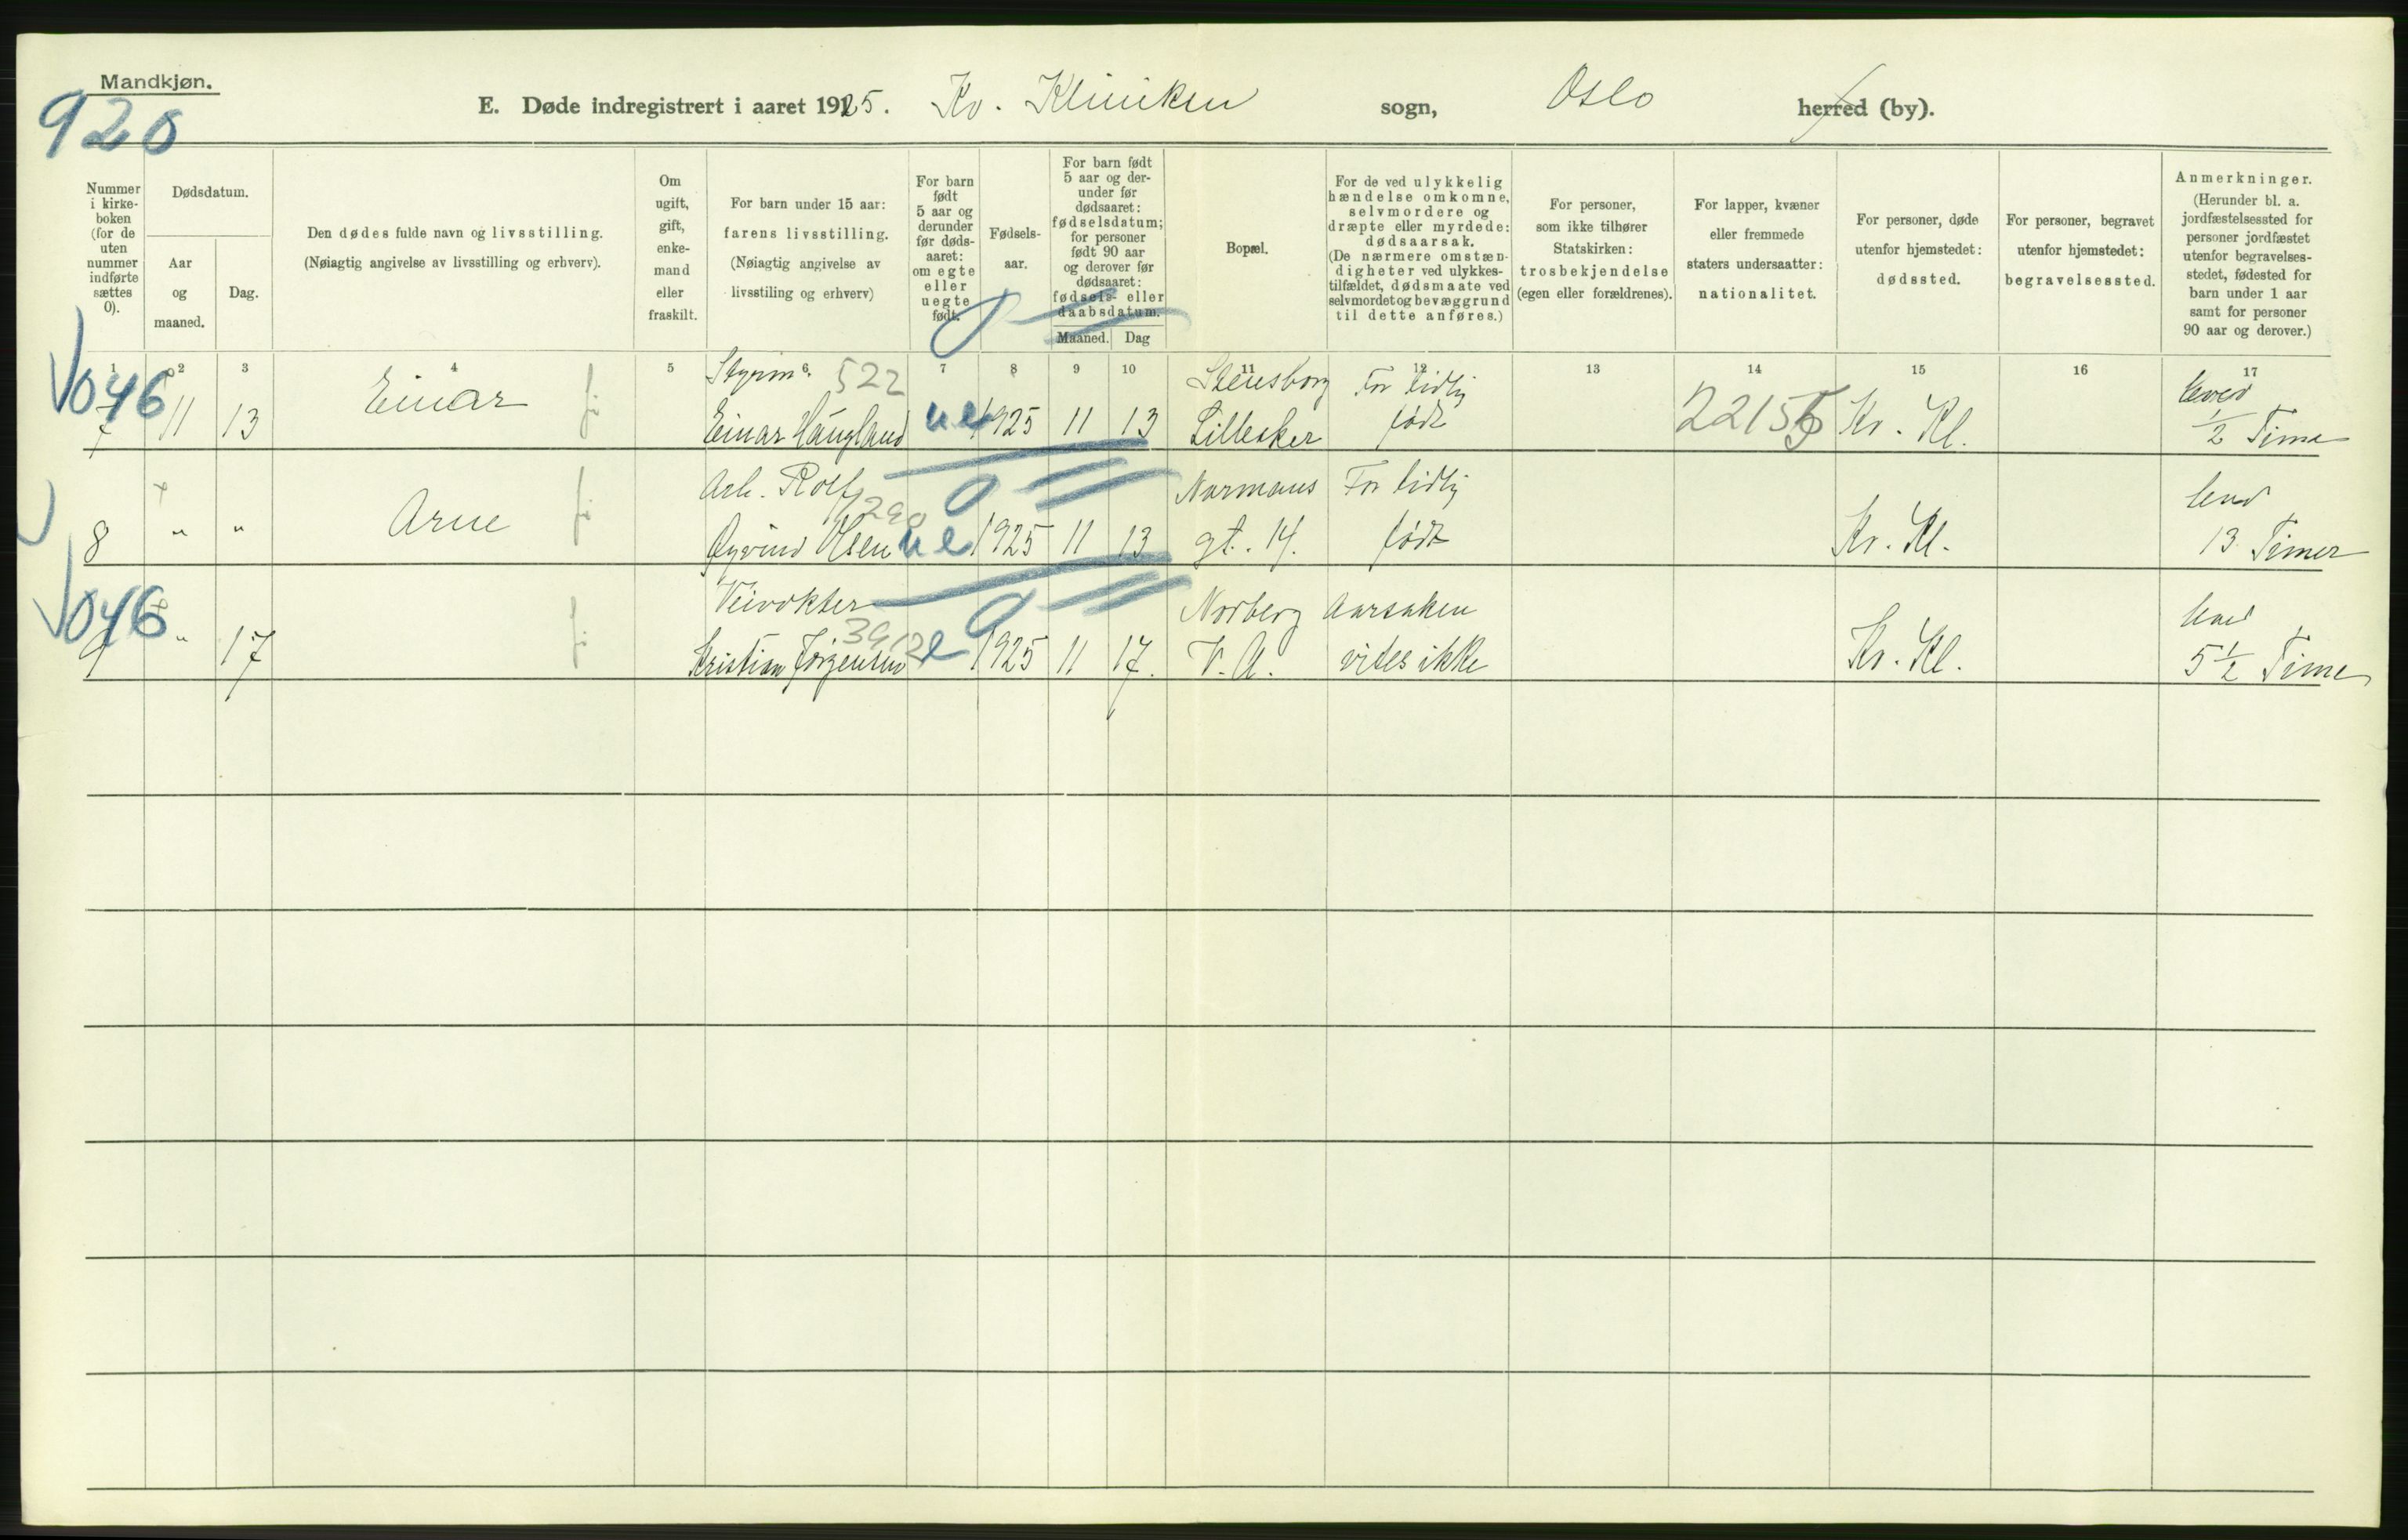 Mandkjøn.
920
E. Døde indregistrert i aaret 1925. Kv. Kliniken sogn, Oslo herred (by).
Nummer i kirke-boken (for de uten nummer indførte sættes 0).
Dødsdatum.
Aar og maaned.
Dag.
Den dødes fulde navn og livsstilling.
(Nøiagtig angivelse av livsstilling og erhverv).
Om ugift, gift, enke-mand eller fraskilt.
For barn under 15 aar: farens livsstilling. (Nøiagtig angivelse av livsstiling og erhverv)
For barn født 5 aar og derunder før døds-aaret: om egte eller uegte født.
Fødsels-aar.
For barn født 5 aar og der-under før dødsaaret: fødselsdatum; for personer født 90 aar og derover før dødsaaret: fødsels- eller daabsdatum.
Maaned. Dag
Bopæl.
For de ved ulykkelig hændelse omkomne, selvmordere og dræpte eller myrdede: dødsaarsak. (De nærmere omstæn-digheter ved ulykkes-tilfældet, dødsmaate ved selvmordet og bevæggrund til dette anføres.)
For personer, som ikke tilhører Statskirken: trosbekjendelse (egen eller forældrenes).
For lapper, kvæner eller fremmede staters undersaatter: nationalitet.
For personer, døde utenfor hjemstedet: dødssted.
For personer, begravet utenfor hjemstedet: begravelsessted.
Anmerkninger. (Herunder bl. a. jordfæstelsessted for personer jordfæstet utenfor begravelses-stedet, fødested for barn under 1 aar samt for personer 90 aar og derover.)
1 2 3 4 5 6 7 8 9 10 11 12 13 14 15 16 17
046 Styrm. 522 Stensborg For tidlig levet
7 11 13 Einar Einar Haugland ue 1925 11 13 Lilleaker født 22155 Kv. Kl. 1/2 Time
Arb. Rolf Normans For tidlig levet
8 " " Arne Øyvind Olsen ue 1925 11 13 gt. 14. født Kv. Kl. 13 Timer
046 Veivokter 3912 Norberg Aarsaken levet
9 " 17 Kristian Jørgensen e 1925 11 17. V. A. vites ikke Kv. Kl. 5 1/2 Time